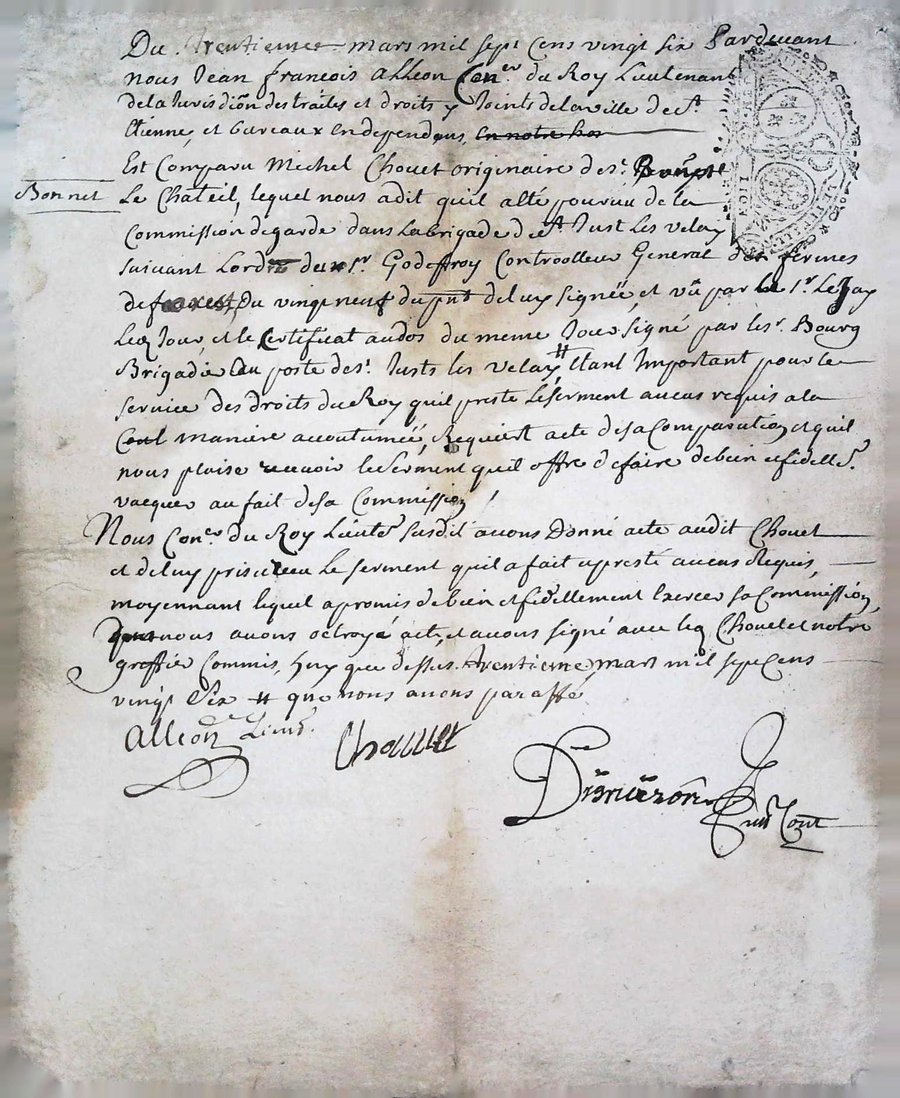 Du trentieme mars mil sept cens vingt six Pardevant
nous Jean francois alleon Con.er du Roy Lieutenant
de la Jurisdion des traites et droits y Joints de la ville de st
Etienne, et bureaux en dependans, en notre hos
Est Comparu Michel Chouet originaire de st.
Bonnet
Le Chateil, lequel nous a dit quil a été pourvu de la
Commission de garde dans la brigade de st Just Les velay
suivant Lordre du sr. Godeffroy Controolleur General des fermes
de forest, Du vingt neuf du pnt de luy signée, et vû par le sr. LeJay
Led Jour, et le Certificat au dos du meme Jour signé par le sr. Bourg
Brigadier au poste de st. Justs les velay # Etant Important pour le
service des droits du Roy quil preste le serment au cas requis a la
manière accoutumée, Requiert acte de sa Comparution, et quil
nous plaise recevoir le serment quil offre de faire de bien et fidelle.t
vacquer au fait de sa Commission /
Nous Con.er du Roy Lieute.t susdit avons Donné acte audit Chouet
et de luy pris et reçu Le serment quil a fait et presté au cas Requis,
moyennant lequel a promis de bien et fidellement Exercer sa Commission,
Dont nous avons octroyé acte, et avons signé avec led Chouet et notre
greffier Commis, ce jourdhuy que dessus trentieme mars mil sept cens
vingt Six # que nous avons paraffé
alleon Lieut.
Chouuet